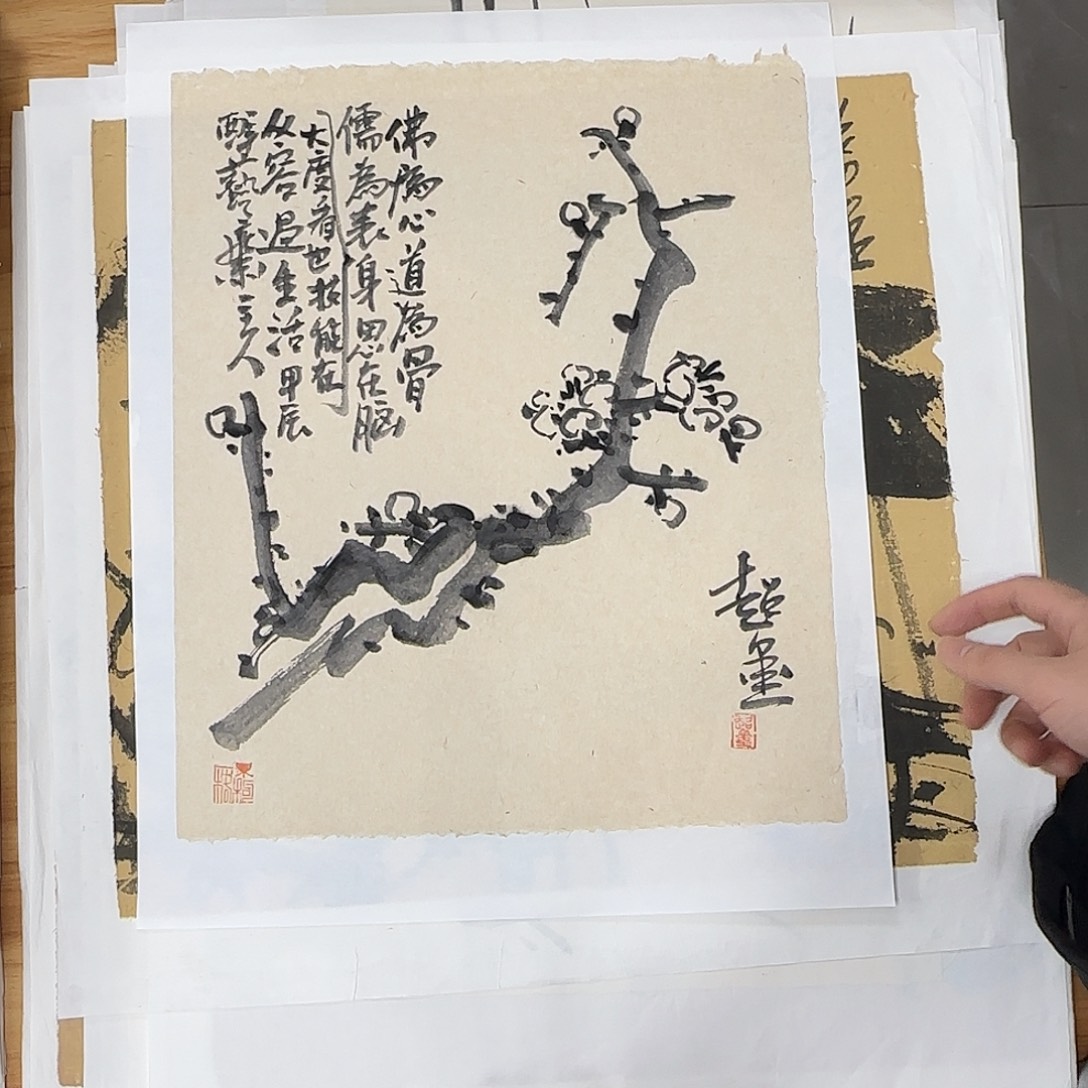 佛為心道為骨
儒為表身思在腦
大度看世技能在
從容過生活甲辰
醉藝軒主人
超墨